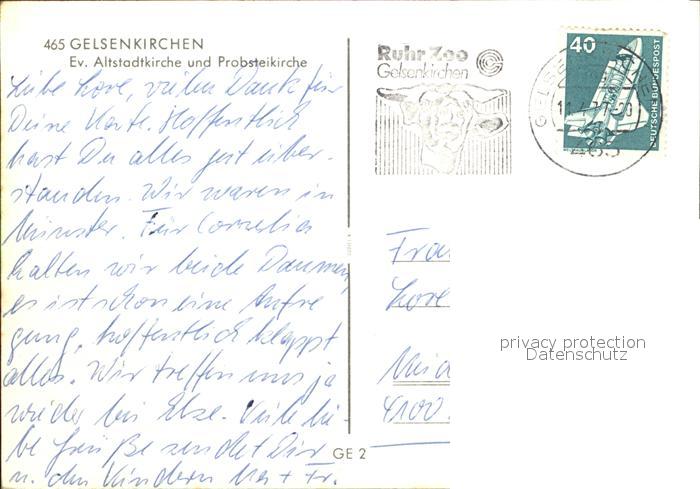 465 GELSENKIRCHEN
Ev. Altstadtkirche und Probsteikirche
Liebe Lore, vielen Dank für
Deine Karte. Hoffentlich
hast Du alles gut über-
standen. Wir waren in
Münster. Für Cornelia
halten wir beide Daumen,
es ist schon eine Aufre
gung, hoffentlich klappt
alles. Wir treffen uns ja
wieder bei Else. Viele lie-
be Grüße sendet Dir
u. den Kindern
GE 2
Ruhr Zoo
Gelsenkirchen
40
DEUTSCHE BUNDESPOST
465
Frau
Lore
4100
privacy protection
Datenschutz